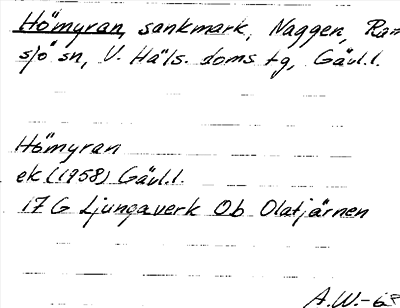 Hömyran, sankmark, Naggen, Ram
sjö sn, V. Häls. doms tg, Gävl.l.
Hömyran
ek (1958) Gävl.l.
17 G Ljungaverk Ob Olatjärnen
A.W.-68